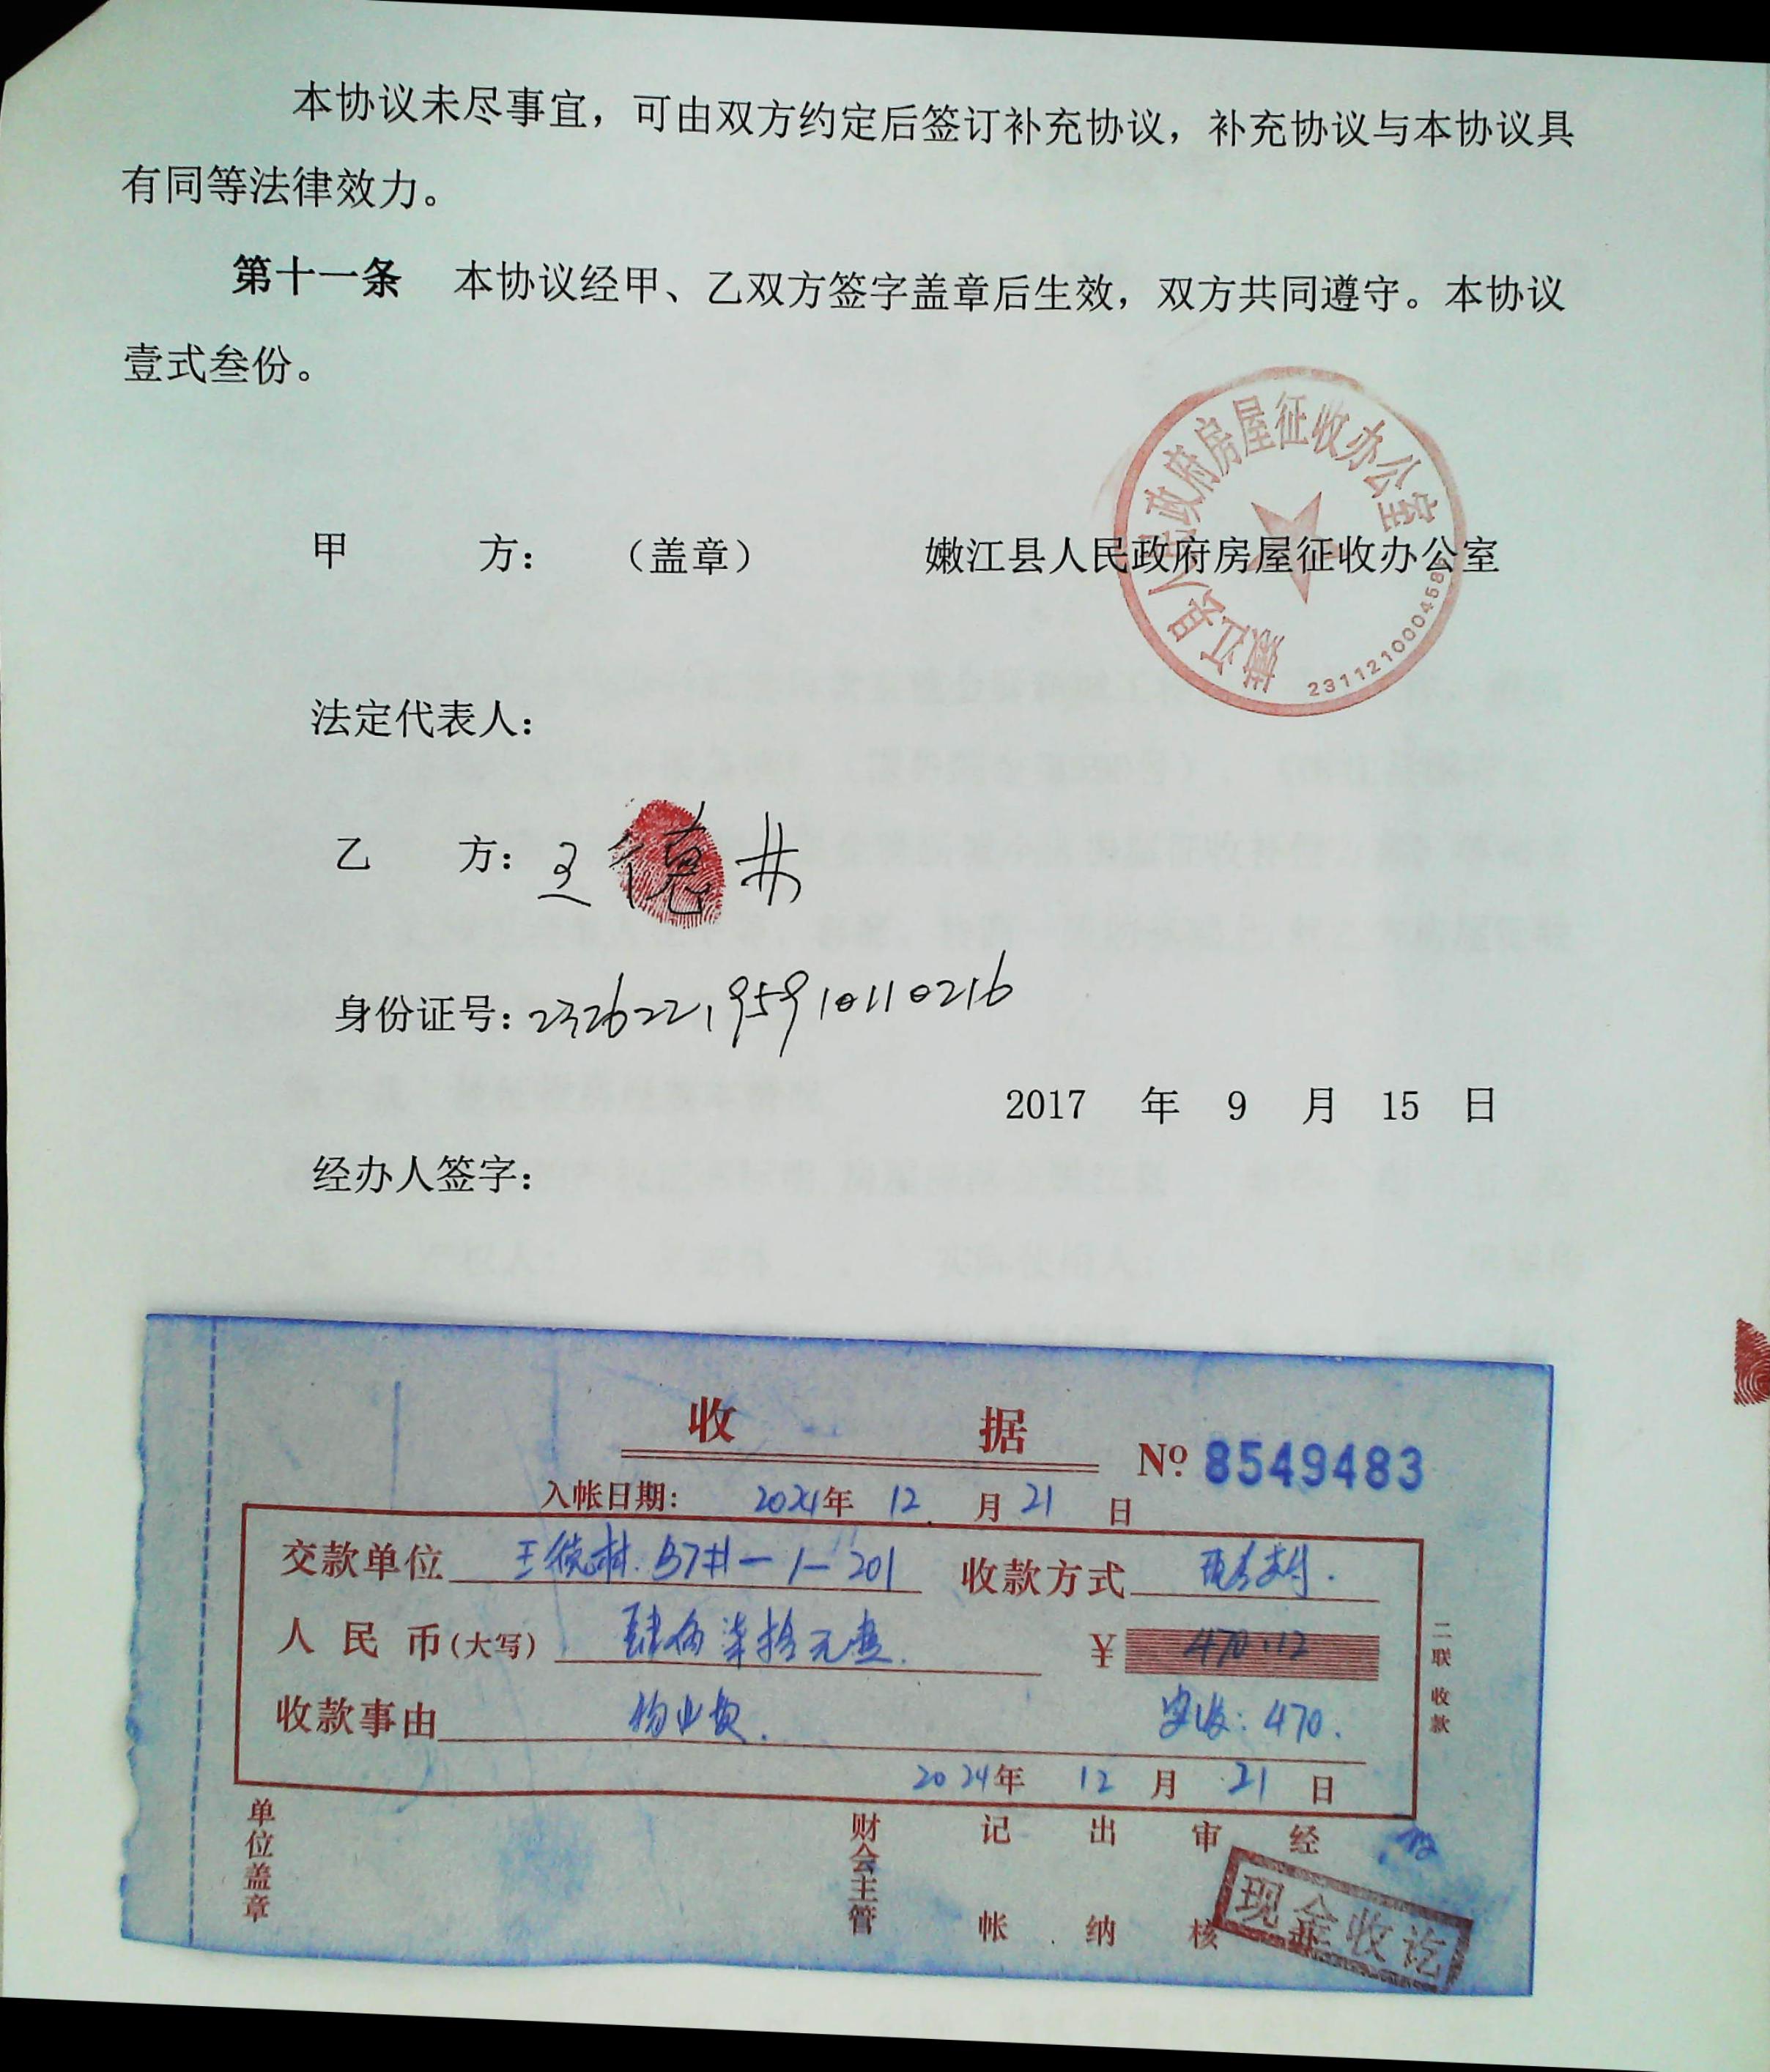 本协议未尽事宜，可由双方约定后签订补充协议，补充协议与本协议具
有同等法律效力。
第十一条 本协议经甲、乙双方签字盖章后生效，双方共同遵守。本协议
壹式叁份。
嫩江县人民政府房屋征收办公室
甲 方： （盖章） 嫩江县人民政府房屋征收办公室
法定代表人：
乙 方：王德林
身份证号：232622195910110216
2017 年 9 月 15 日
经办人签字：
收 据 № 8549483
入帐日期： 2024年 12 月 21 日
交款单位 王德林. B7#-1-201 收款方式
人民币(大写) 肆佰柒拾元整. ¥ 470.12
收款事由 物业费. 实收：470.
2024年 12 月 21 日
二联 收款
单位盖章 财会主管 记帐 出纳 审核 经办
现金收讫